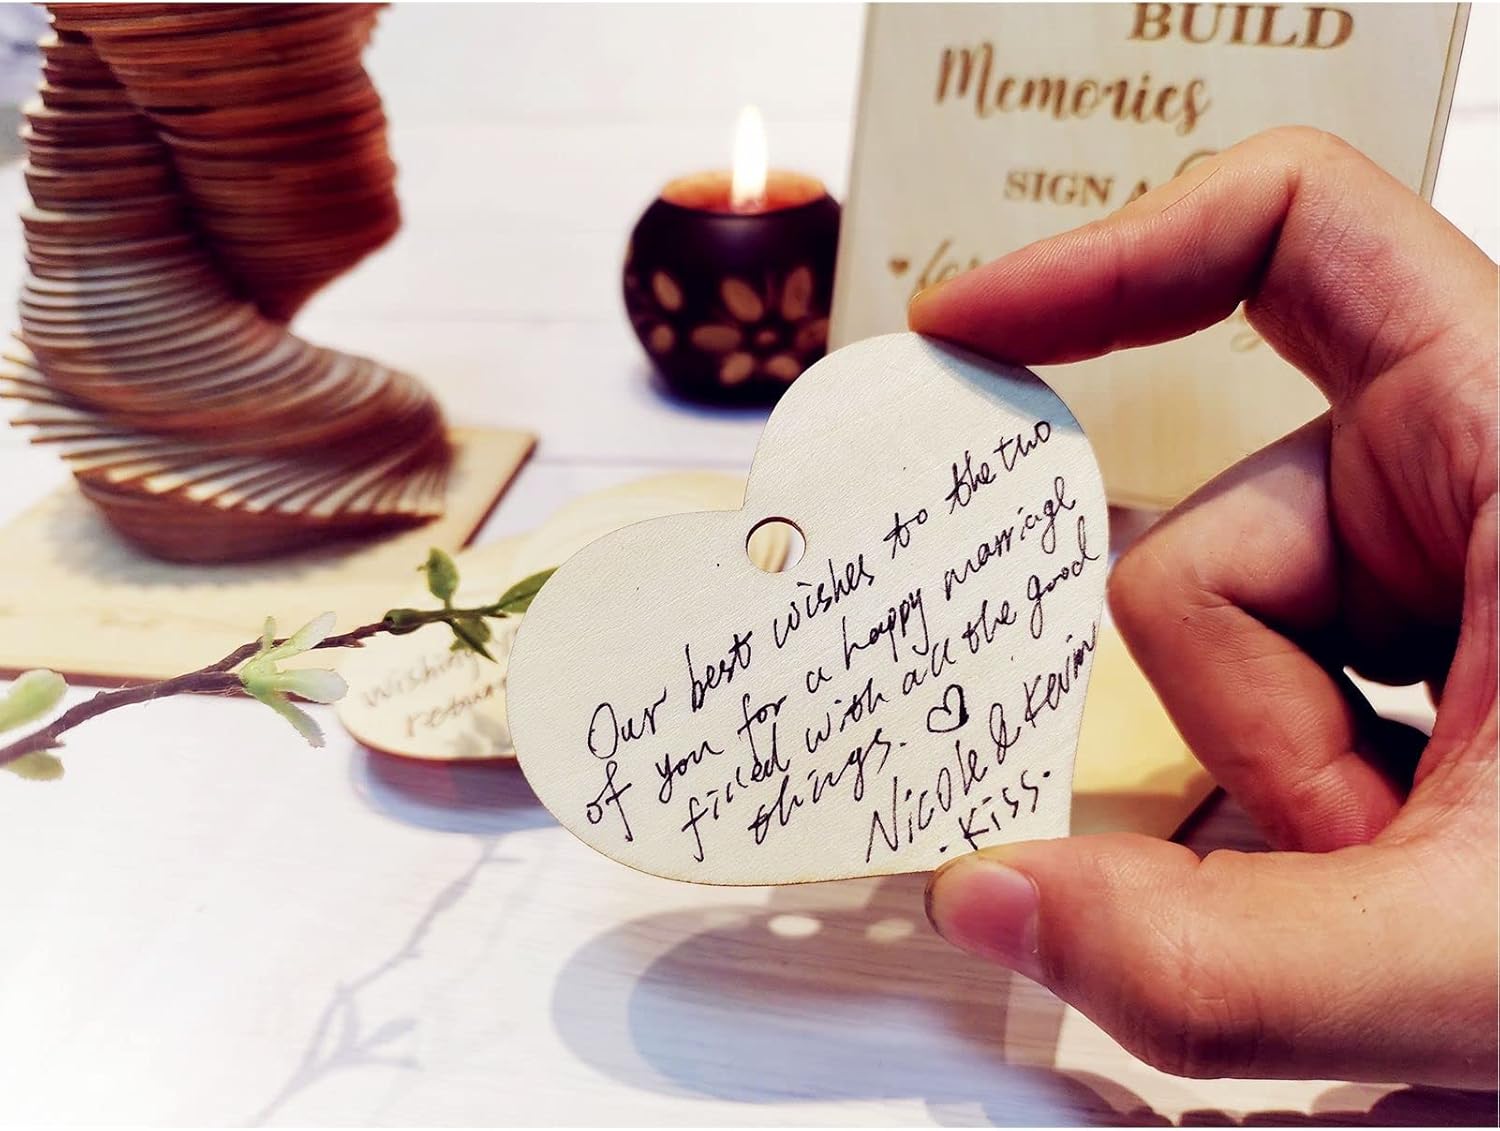 BUILD
Memories
SIGN A
wishing
return
Our best wishes to the two
of you for a happy marriage
filled with all the good
things. ♡
Nicole & Kevin
. Kiss.